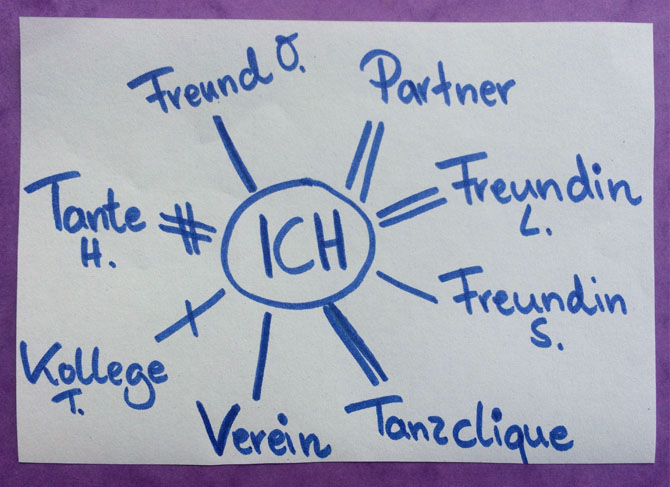 Freund O.
Partner
Tante
H.
Freundin
L.
ICH
Freundin
S.
Kollege
T.
Verein
Tanzclique